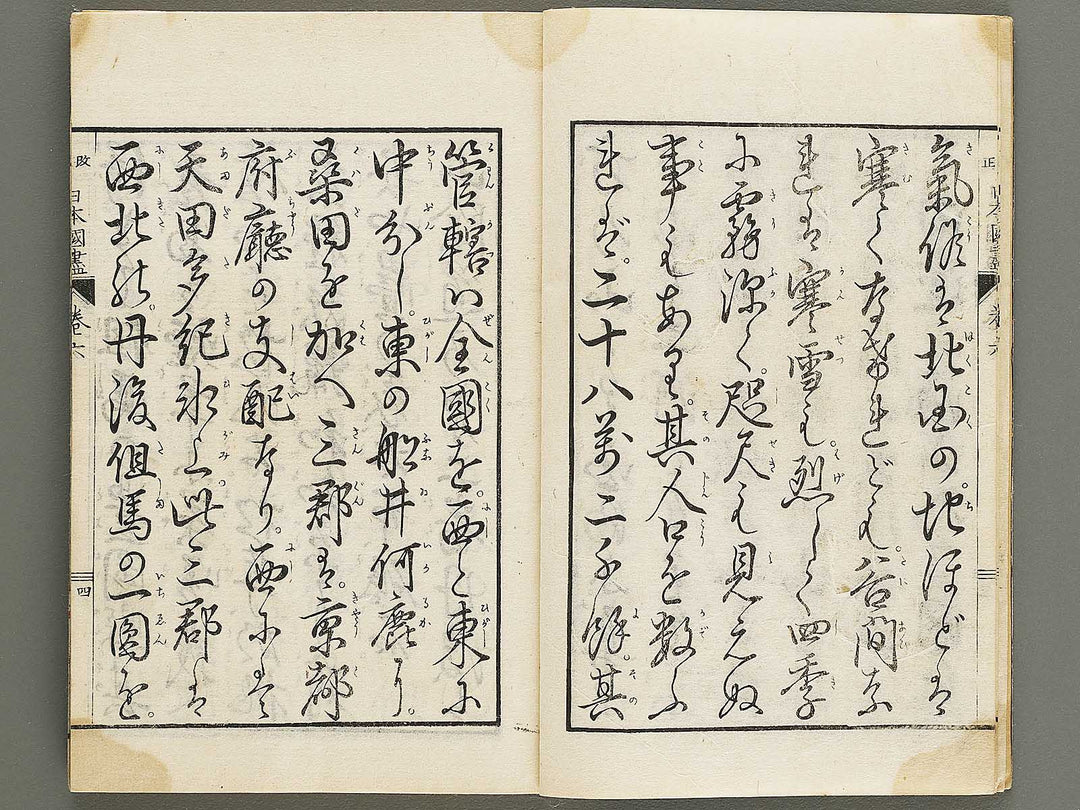 正 日本國盡 卷六
氣候は北国の。地ほどは
寒くなけれども。谷間な
れは寒雪も。烈しく四季
に霧深く。咫尺も見えぬ
事もあり。其人口を數ふ
れば。二十八萬二千餘。其
管轄ハ全國を。西と東に
中分し。東の船井何鹿に。
桑田を加へ三郡は。京都
府廳の支配なり。西には
天田多紀氷上此三郡は
西北の。丹後但馬の一圓を。
改 日本國盡 卷六 四